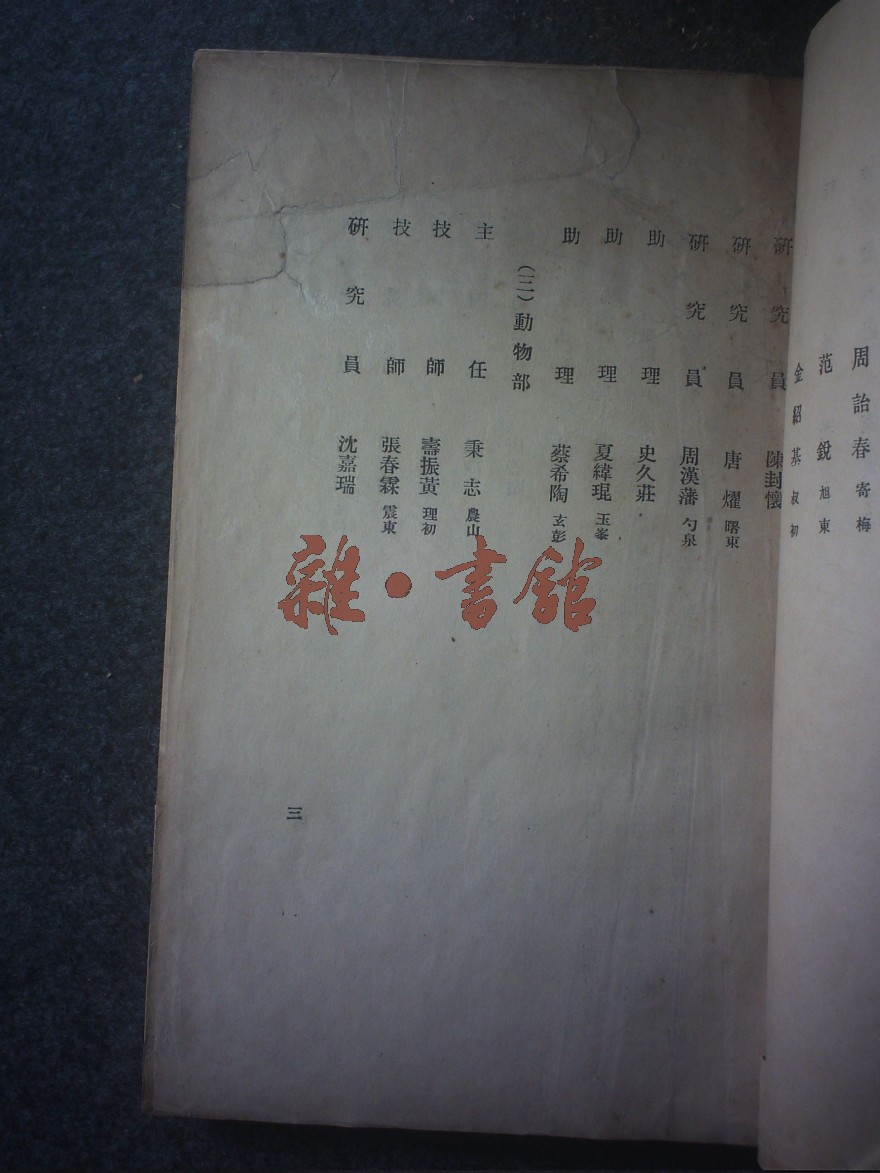 周詒春 寄梅
范銳 旭東
金紹基 叔初
研究員 陳封懷
研究員 唐燿 曙東
研究員 周漢藩 勺泉
助理 史久莊
助理 夏緯琨 玉峯
助理 蔡希陶 玄彭
(三)動物部
主任 秉志 農山
技師 壽振黃 理初
技師 張春霖 震東
研究員 沈嘉瑞
三
雜·書館